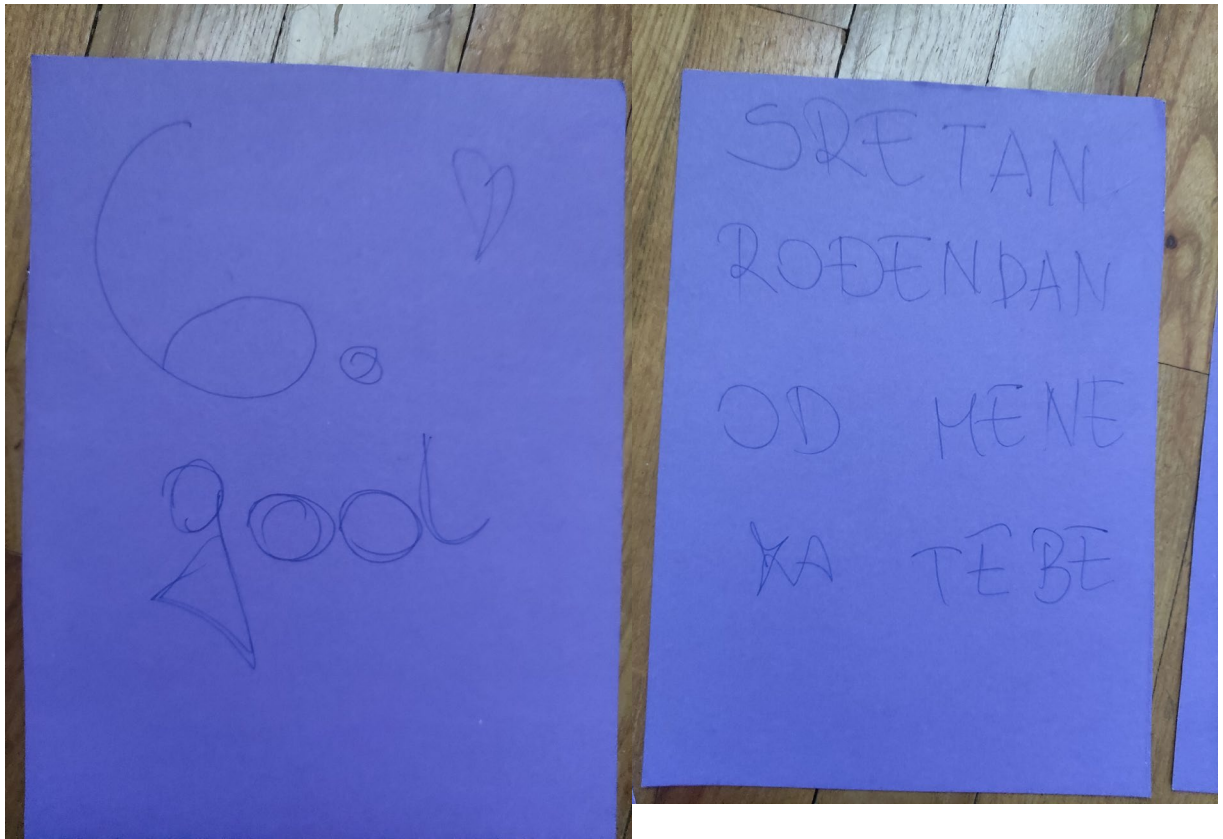 6.
god
SRETAN
ROĐENDAN
OD MENE
ZA TEBE